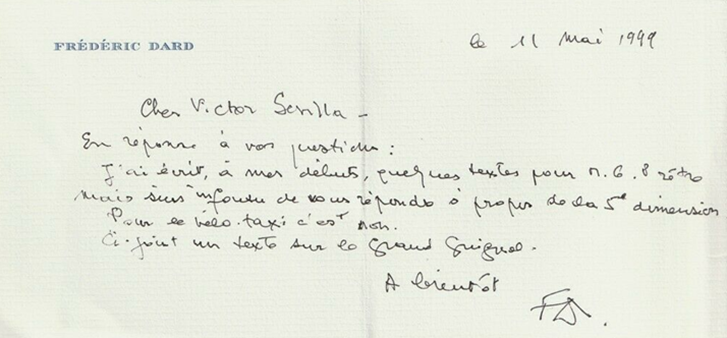 FRÉDÉRIC DARD
le 11 mai 1999
Cher Victor Sevilla -
En réponse à vos questions :
J'ai écrit, à mes débuts, quelques textes pour M.G.
mais suis infoutu de vous répondre à propos de la 5e dimension
Pour le vélo-taxi c'est non.
Ci-joint un texte sur le Grand Guignol.
A bientôt
FD.